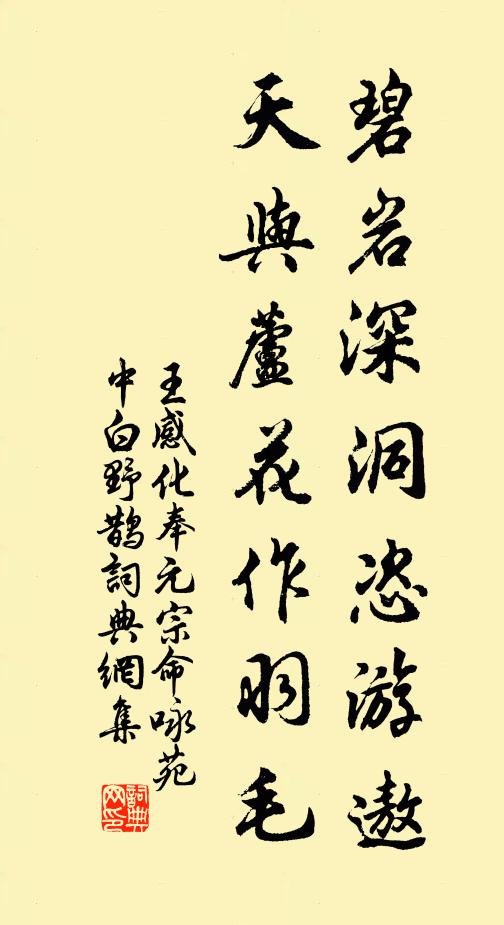 碧岩深洞恣游遨
天與蘆花作羽毛
王感化奉元宗命咏苑
中白野鵲詞典網集
詞典
网印